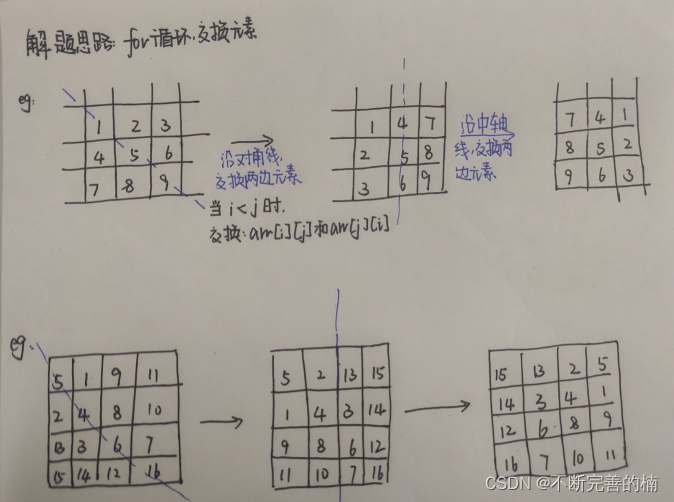 解题思路: for循环,交换元素
eg:
1 2 3
4 5 6
7 8 9
沿对角线,
交换两边元素
当 i<j 时,
交换: arr[i][j]和arr[j][i]
1 4 7
2 5 8
3 6 9
沿中轴
线,交换两
边元素
7 4 1
8 5 2
9 6 3
eg:
5 1 9 11
2 4 8 10
13 3 6 7
15 14 12 16
5 2 13 15
1 4 3 14
9 8 6 12
11 10 7 16
15 13 2 5
14 3 4 1
12 6 8 9
16 7 10 11
CSDN @不断完善的楠